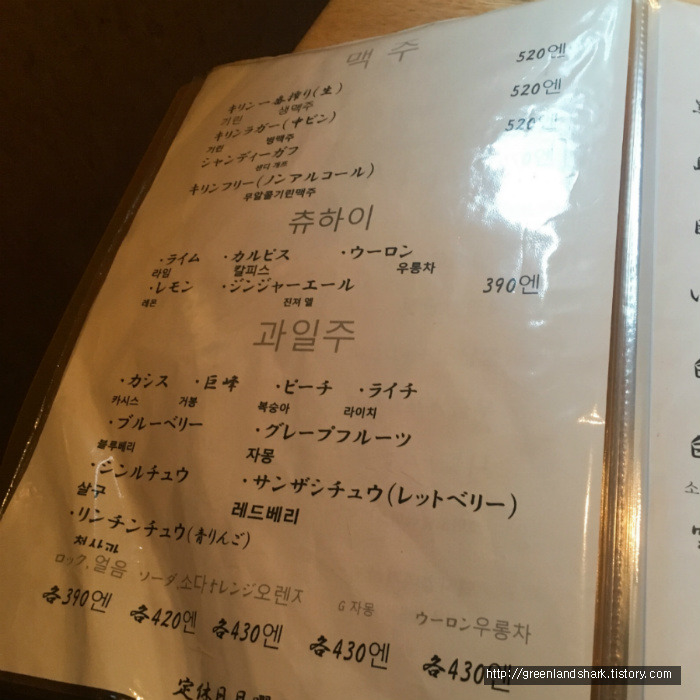 맥 주
520엔
キリン一番搾り(生) 520엔
기린 생맥주
キリンラガー(中ビン) 520엔
기린 병맥주
シャンディーガフ
샨디 개프
キリンフリー(ノンアルコール)
무알콜기린맥주
츄하이
・ライム ・カルピス ・ウーロン
라임 칼피스 우롱차
・レモン ・ジンジャーエール 390엔
레몬 진져 엘
과일주
・カシス ・巨峰 ・ピーチ ・ライチ
카시스 거봉 복숭아 라이치
・ブルーベリー ・グレープフルーツ
블루베리 자몽
・シンルチュウ ・サンザシチュウ(レットベリー)
살구 레드베리
・リンチンチュウ(青りんご)
청사과
ロック,얼음 ソーダ,소다 オレンジ오렌지 G 자몽 ウーロン우롱차
各390엔 各420엔 各430엔 各430엔 各430엔
定休日月曜
http://greenlandshark.tistory.com